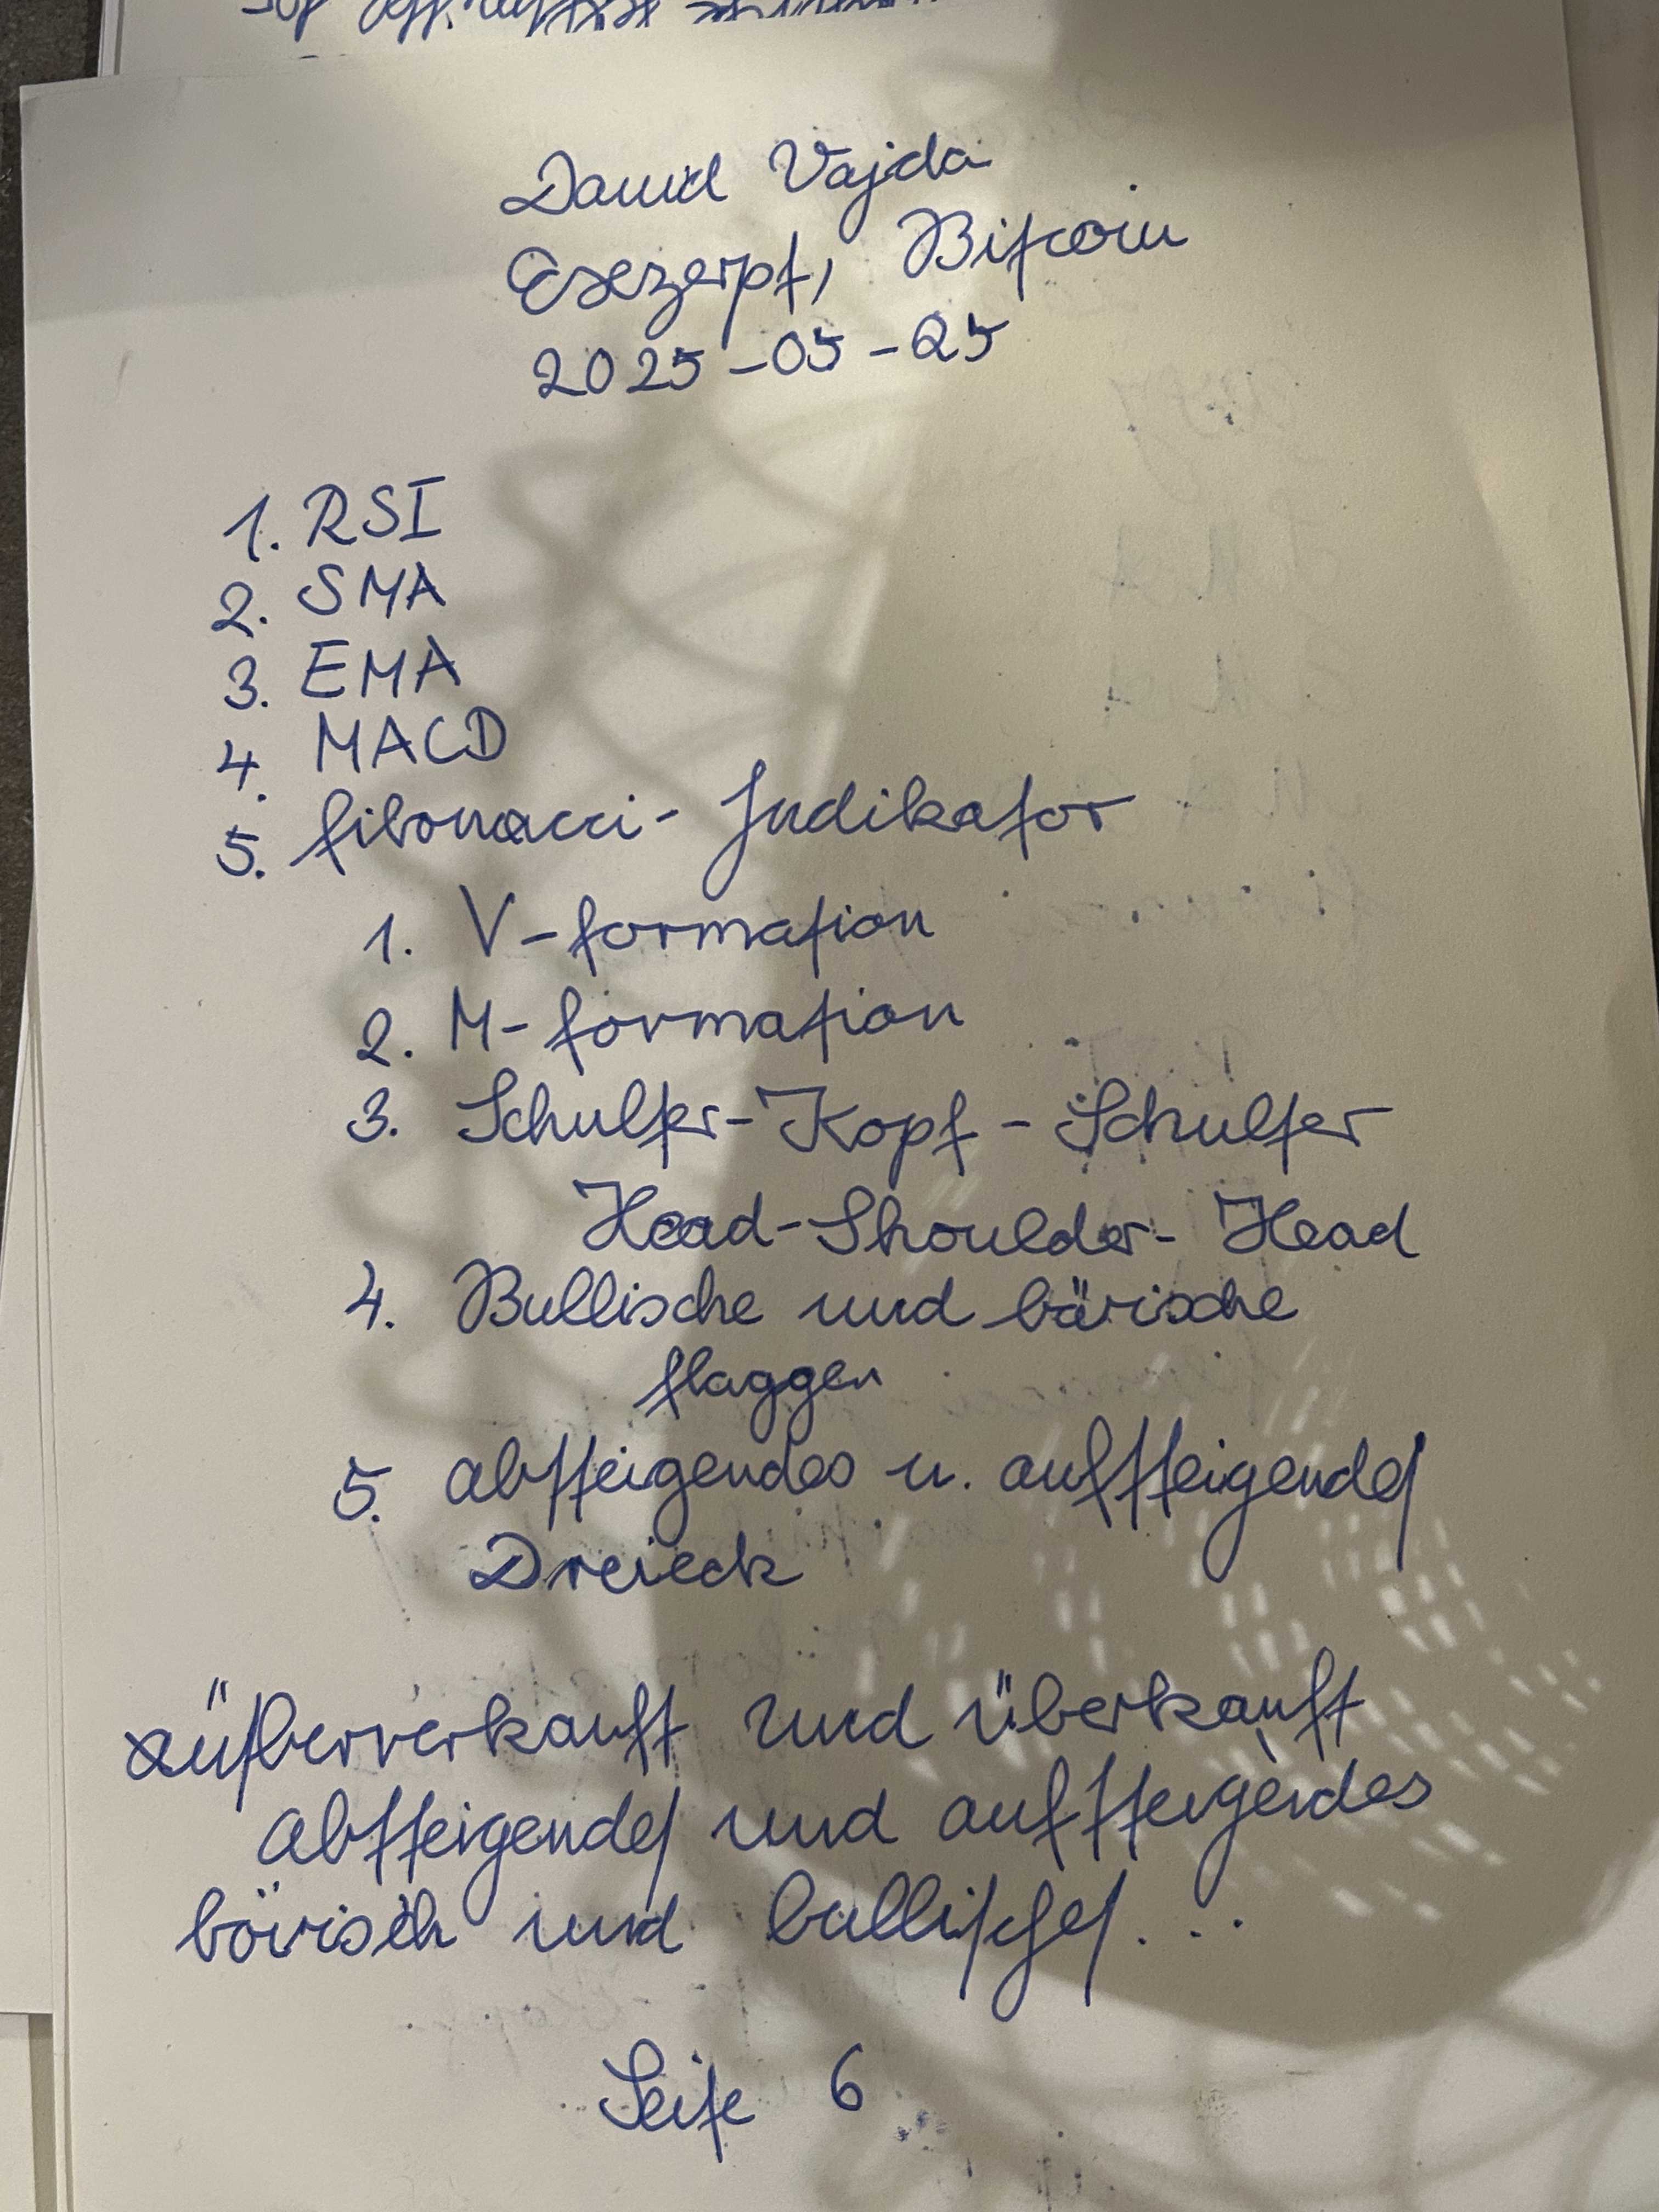 David Vajda
Exezerpt, Bitcoin
2025-05-25
1. RSI
2. SMA
3. EMA
4. MACD
5. Fibonacci-Indikator
1. V-Formation
2. M-Formation
3. Schulter-Kopf-Schulter
Head-Shoulder-Head
4. Bullische und bärische
Flaggen
5. absteigendes u. aufsteigendes
Dreieck
überverkauft und überkauft
absteigendes und aufsteigendes
bärisch und bullisches...
Seite 6